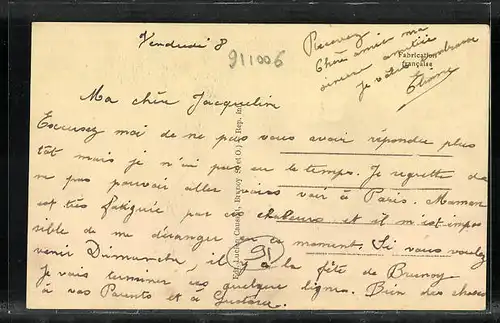 Vendredi 8
911006
Recevez
Chère amie ma
sincère amitié
Je vous embrasse
Etienne
Fabrication
française
Ma chère Jacqueline
Excusez moi de ne pas vous avoir répondu plus
tôt mais je n'ai pas eu le temps. Je regrette de
ne pas pouvoir aller vous voir à Paris. Maman
est très fatiguée par ces chaleurs et il m'est impos
sible de me déranger en ce moment. Si vous voulez
venir Dimanche, il y a la fête de Brunoy
Je vais terminer ces quelque lignes. Bien des choses
à vos Parents et à Gustave.
Edit. Lucien Brunoy (S.-et-O.) Rep. int.
95